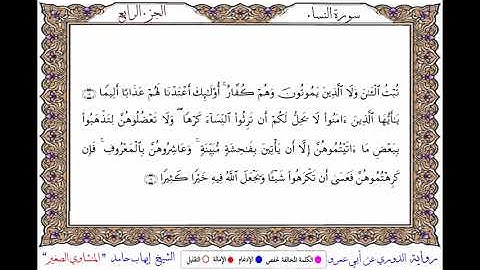 سورة النساء الجزء الرابع
تُبْتُ الْـَٰٔنَ وَلَا الَّذِينَ يَمُوتُونَ وَهُمْ كُفَّارٌ أُو۟لَٰٓئِكَ أَعْتَدْنَا لَهُمْ عَذَابًا أَلِيمًا
يَٰٓأَيُّهَا الَّذِينَ ءَامَنُوا۟ لَا يَحِلُّ لَكُمْ أَن تَرِثُوا۟ النِّسَآءَ كَرْهًا وَلَا تَعْضُلُوهُنَّ لِتَذْهَبُوا۟
بِبَعْضِ مَآ ءَاتَيْتُمُوهُنَّ إِلَّآ أَن يَأْتِينَ بِفَٰحِشَةٍ مُّبَيِّنَةٍ وَعَاشِرُوهُنَّ بِالْمَعْرُوفِ فَإِن
كَرِهْتُمُوهُنَّ فَعَسَىٰٓ أَن تَكْرَهُوا۟ شَيْـًٔا وَيَجْعَلَ اللَّهُ فِيهِ خَيْرًا كَثِيرًا
رواية الدوري عن أبي عمرو الكلمة المخالفة لحفص الإدغام الإمالة التقليل الشيخ إيهاب حامد "المنشاوي الصغير"